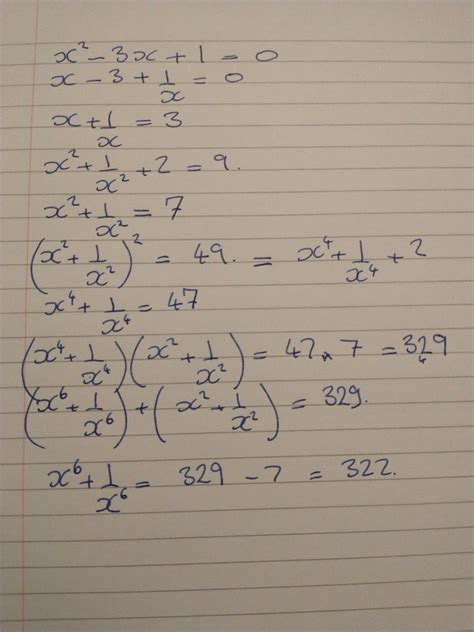 x² - 3x + 1 = 0
x - 3 + 1/x = 0
x + 1/x = 3
x² + 1/x² + 2 = 9.
x² + 1/x² = 7
(x² + 1/x²)² = 49. = x⁴ + 1/x⁴ + 2
x⁴ + 1/x⁴ = 47
(x⁴ + 1/x⁴)(x² + 1/x²) = 47 × 7 = 329
4
(x⁶ + 1/x⁶) + (x² + 1/x²) = 329.
x⁶ + 1/x⁶ = 329 - 7 = 322.